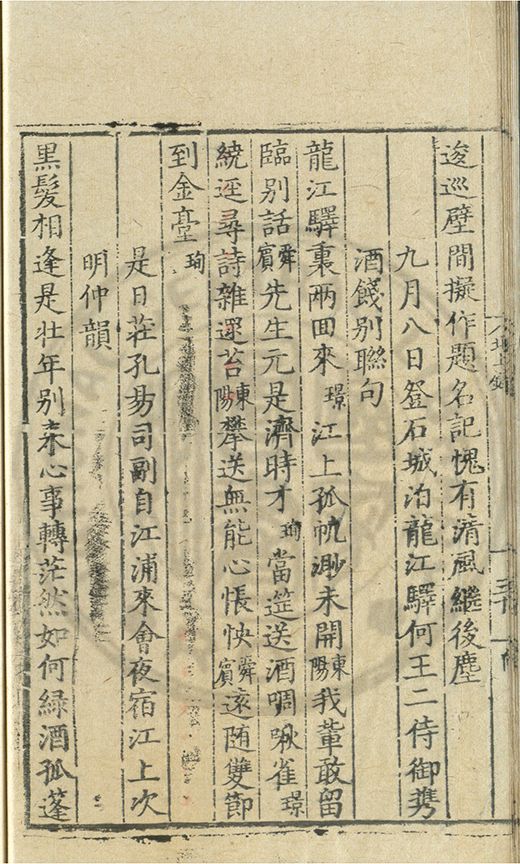 逡巡壁間擬作題名記愧有清風繼後塵
九月八日登石城泊龍江驛何王二侍御携
酒餞別聯句
龍江驛裏兩囬來璟江上孤帆渺未開東陽我輩敢留
臨别話舜賓先生元是濟時才珣當筵送酒啁啾雀璟
繞逕尋詩雜遝苔東陽攀送無能心悵怏舜賓遠随雙節
到金臺珣
是日莊孔昜司副自江浦來會夜宿江上次
明仲韻
黒髪相逢是壮年别來心事轉茫然如何緑酒孤蓬